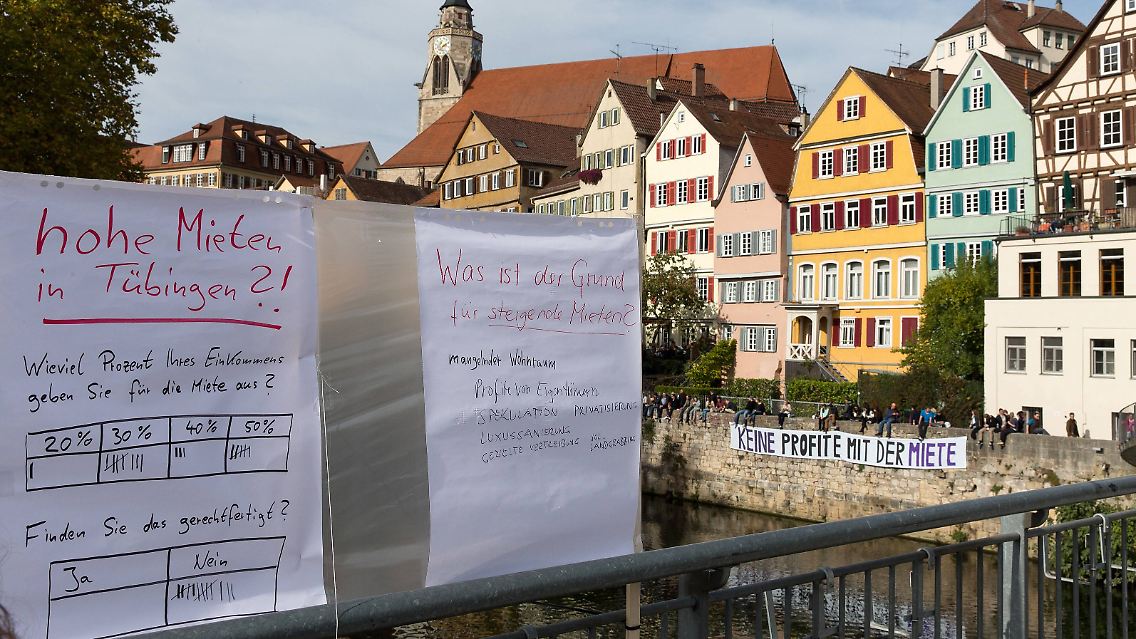 hohe Mieten
in Tübingen?!
Wieviel Prozent Ihres Einkommens
geben Sie für die Miete aus?
20% 30% 40% 50%
Finden Sie das gerechtfertigt?
Ja Nein
Was ist der Grund
für steigende Mieten?
mangelnder Wohnraum
Profite von Eigentümern
SPEKULATION PRIVATISIERUNG
LUXUSSANIERUNG
GEZIELTE VERTREIBUNG
KEINE PROFITE MIT DER MIETE